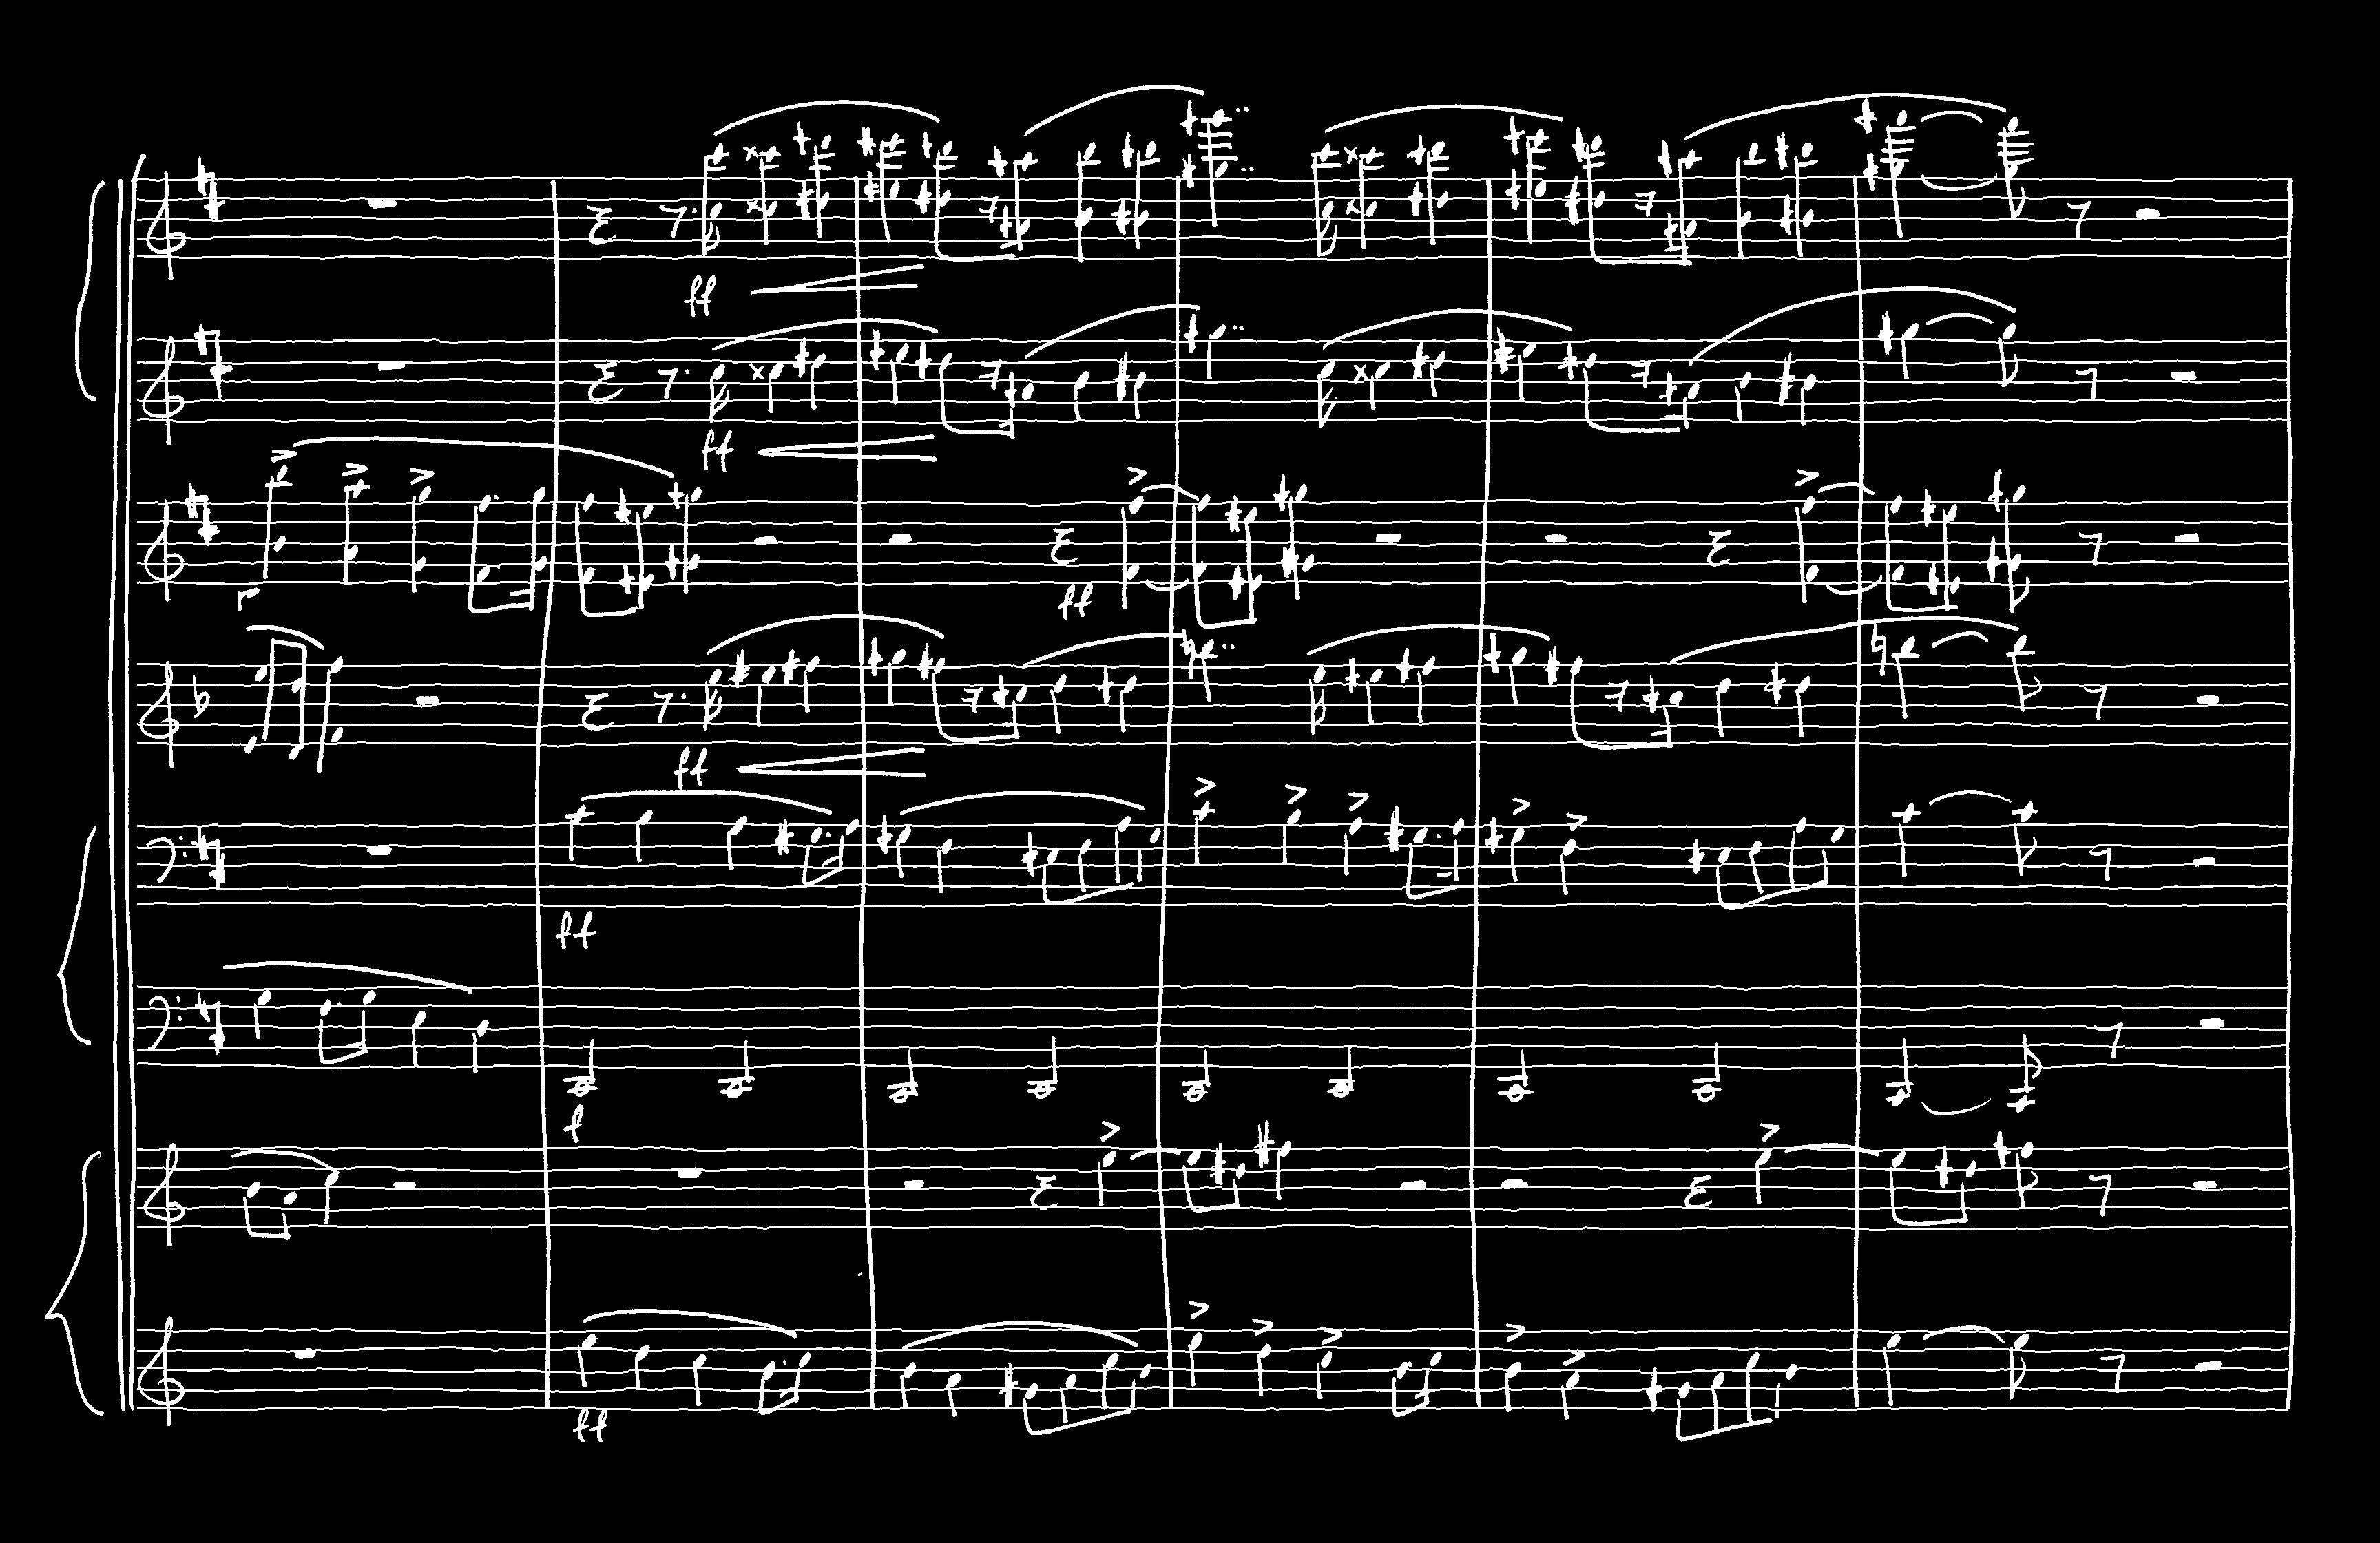 ff
ff
r
ff
ff
ff
f
ff